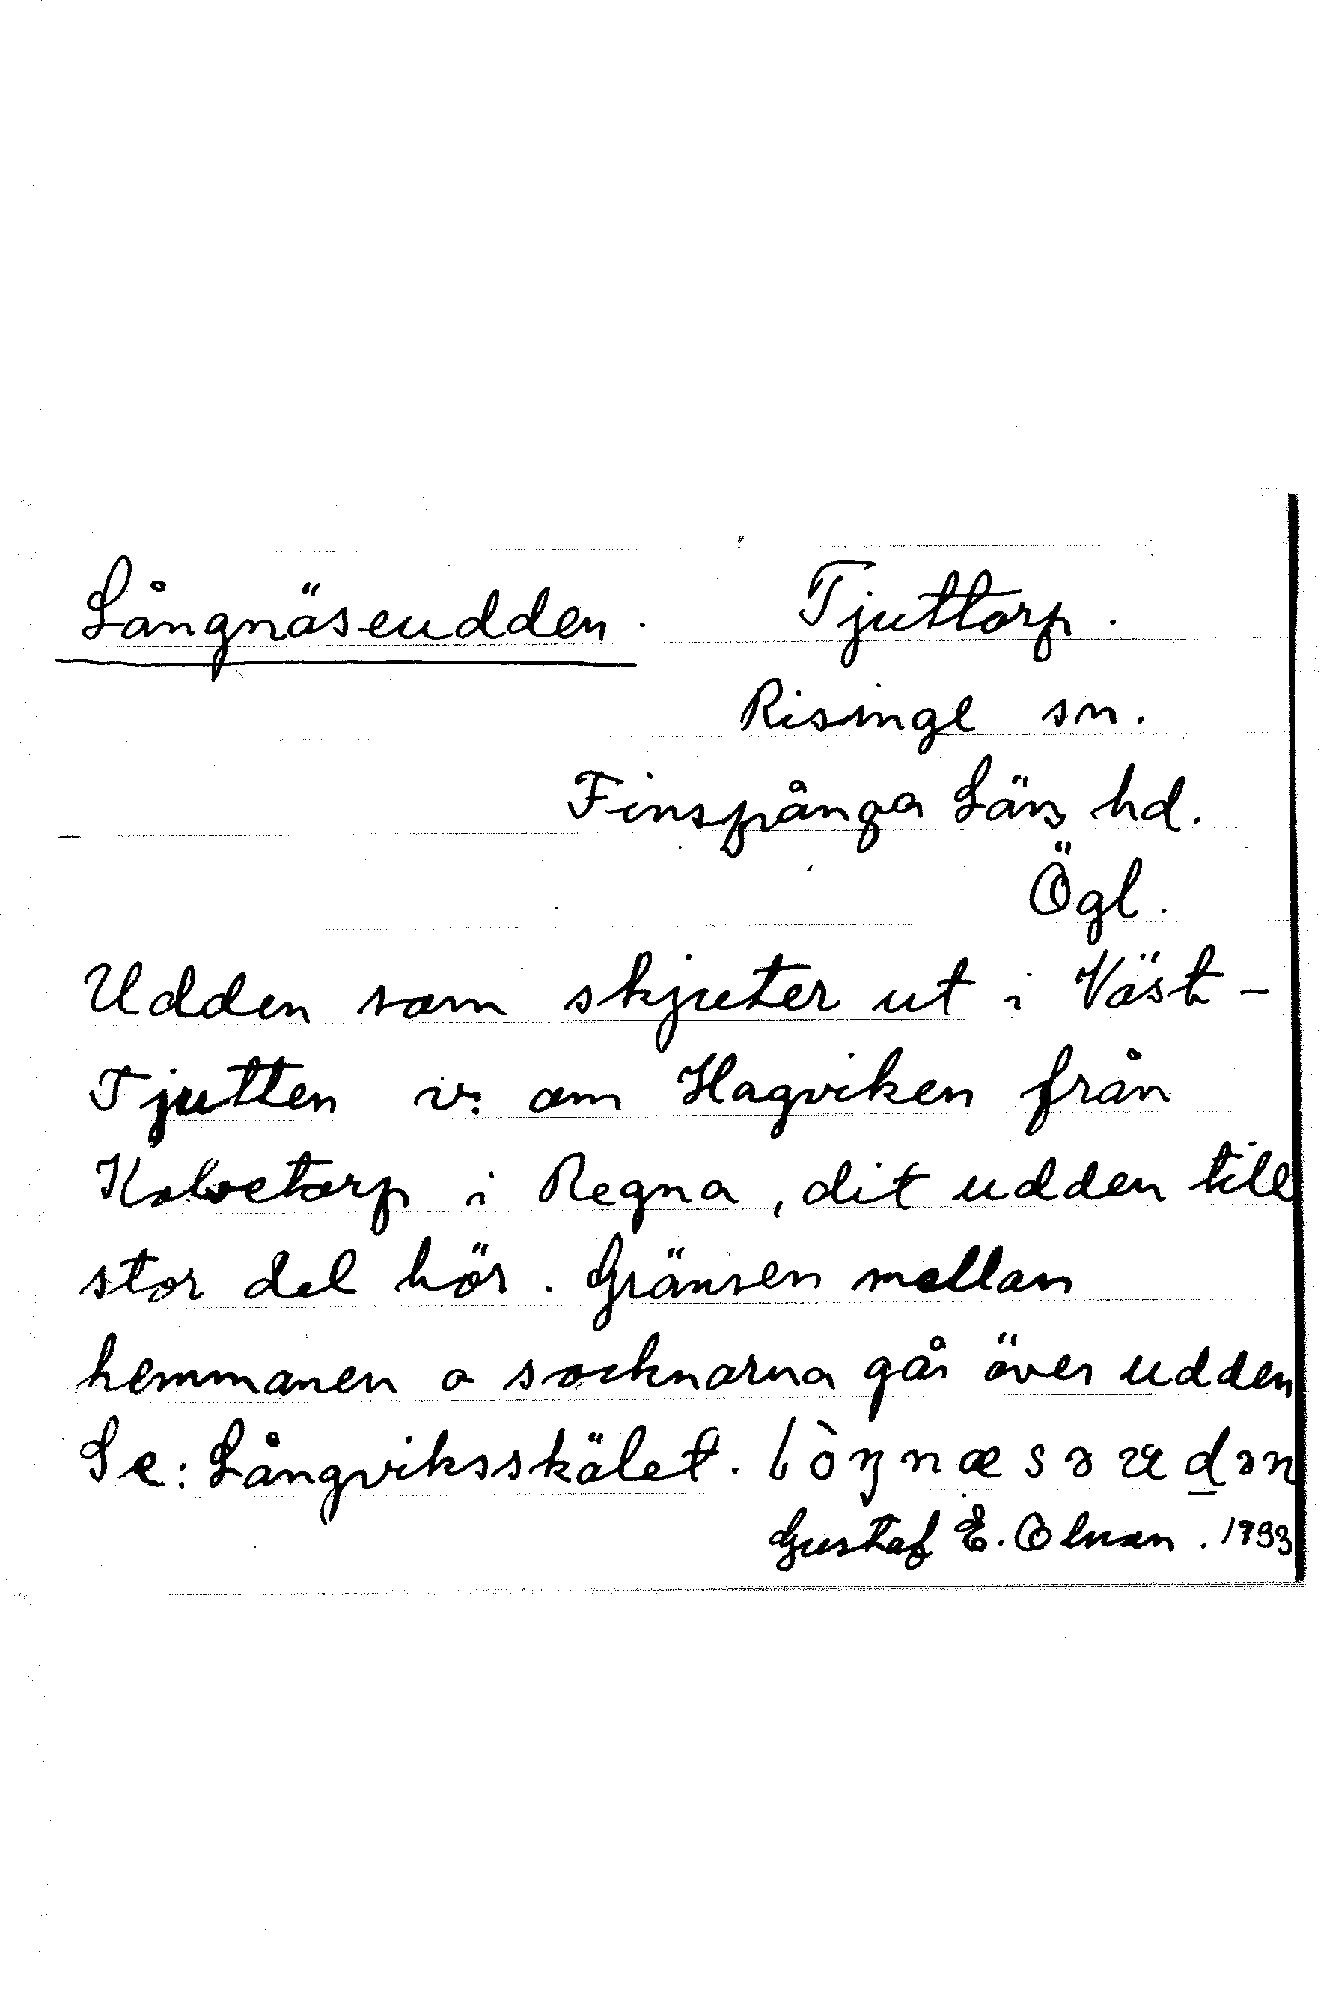 Långnäseudden. Tjuttorp.
Risinge sn.
Finspånga Läns hd.
Ögl.
Udden som skjuter ut i Väst-
Tjutten v. om Hagviken från
Kalvetorp i Regna, dit udden till
stor del hör. Gränsen mellan
hemmanen o socknarna går över udden
Se: Långviksskälet.
Gustaf E. Olsson. 1933